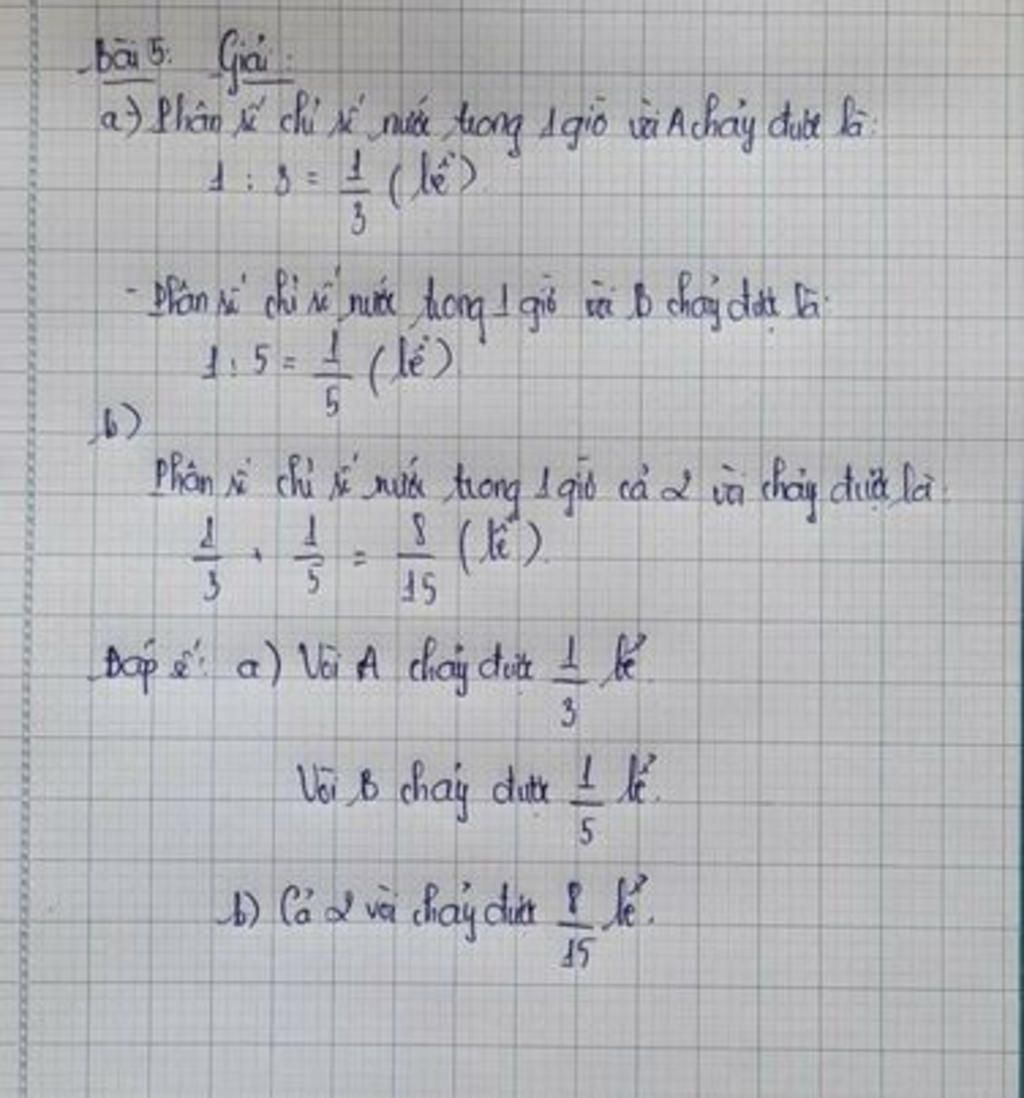 Bài 5: Giải:
a) Phân số chỉ số nước trong 1 giờ vòi A chảy được là:
1 : 3 = 1/3 (bể)
- Phân số chỉ số nước trong 1 giờ vòi B chảy được là:
1 : 5 = 1/5 (bể)
b)
Phân số chỉ số nước trong 1 giờ cả 2 vòi chảy được là:
1/3 + 1/5 = 8/15 (bể).
Đáp số: a) Vòi A chảy được 1/3 bể
Vòi B chảy được 1/5 bể.
b) Cả 2 vòi chảy được 8/15 bể.